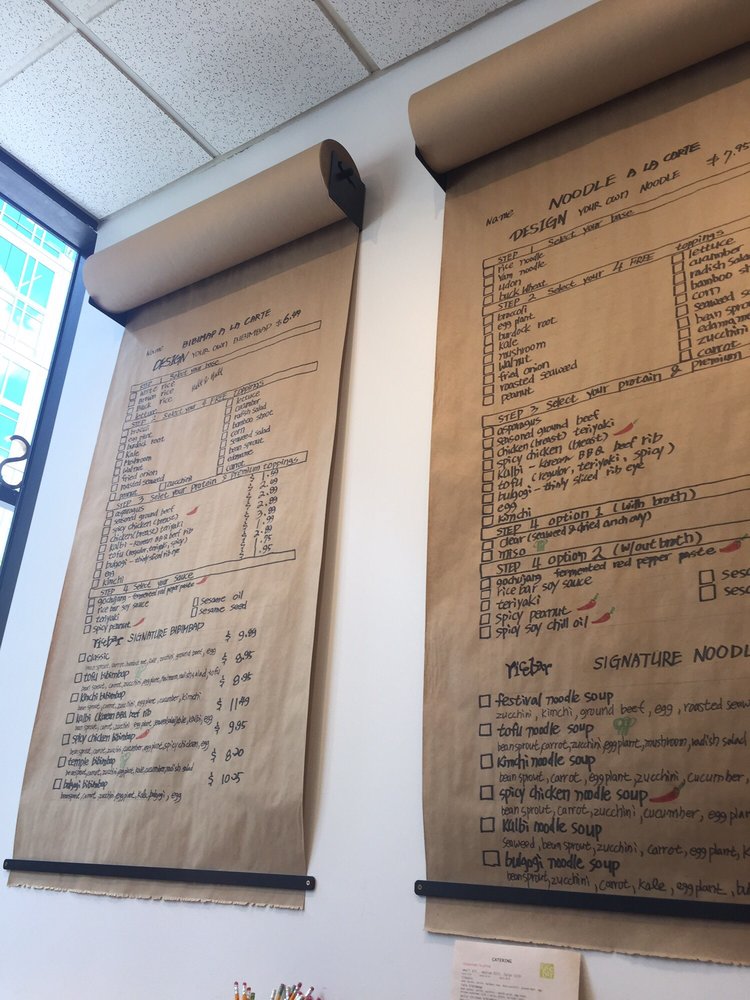 Name BIBIMBAP A LA CARTE
DESIGN YOUR OWN BIBIMBAP $6.99
STEP 1 Select your base
white rice
brown rice Half & Half
black rice
lettuce
STEP 2 Select your 4 FREE toppings
broccoli
egg plant
burdock root
kale
mushroom
walnut
fried onion
roasted seaweed
peanut
zucchini
lettuce
cucumber
radish salad
bamboo shoot
corn
seaweed salad
bean sprout
edamame
carrot
STEP 3 Select your Protein & Premium toppings
asparagus
seasoned ground beef
spicy chicken (breast)
chicken (breast) teriyaki
kalbi - Korean BBQ beef rib
tofu (regular, teriyaki, spicy)
bulgogi - thinly sliced rib eye
egg
kimchi
STEP 4 Select your sauce
gochujang - fermented red pepper paste
rice bar soy sauce
teriyaki
spicy peanut
sesame oil
sesame seed
ricebar SIGNATURE BIBIMBAP
classic $ 9.99
bean sprout, carrot, zucchini, kale, ground beef, egg
tofu bibimbap $ 8.95
kimchi bibimbap $ 8.95
bean sprout, carrot, zucchini, eggplant, cucumber, kimchi
kalbi (Korean BBQ beef rib $ 11.49
spicy chicken bibimbap $ 9.95
bean sprout, carrot, zucchini, cucumber, eggplant, spicy chicken, egg
temple bibimbap $ 8.20
bean sprout, carrot, zucchini, eggplant, kale, cucumber, radish salad
bulgogi bibimbap $ 10.25
bean sprout, carrot, zucchini, eggplant, kale, bulgogi, egg
Name NOODLE A LA CARTE
DESIGN YOUR OWN NOODLE $7.95
STEP 1 Select your base
rice noodle
Yam noodle
udon
buck wheat
STEP 2 Select your 4 FREE toppings
broccoli
egg plant
burdock root
kale
mushroom
walnut
fried onion
roasted seaweed
peanut
lettuce
cucumber
radish salad
bamboo shoot
corn
seaweed sa
bean sprou
edamame
zucchini
carrot
STEP 3 Select your protein & premium
asparagus
seasoned ground beef
chicken (breast) teriyaki
spicy chicken (breast)
kalbi - Korean BBQ beef rib
tofu (regular, teriyaki, spicy)
bulgogi - thinly sliced rib eye
egg
kimchi
STEP 4 option 1 (with broth)
clear (seaweed & dried anchovy)
miso
STEP 4 option 2 (w/out broth)
gochujang fermented red pepper paste
rice bar soy sauce
teriyaki
spicy peanut
spicy soy chili oil
sesa
sesa
ricebar SIGNATURE NOODL
festival noodle soup
zucchini, kimchi, ground beef, egg, roasted seaw
tofu noodle soup
bean sprout, carrot, zucchini, eggplant, mushroom, radish salad
kimchi noodle soup
bean sprout, carrot, eggplant, zucchini, cucumber,
spicy chicken noodle soup
bean sprout, carrot, zucchini, cucumber, egg plan
kalbi noodle soup
seaweed, bean sprout, zucchini, carrot, eggplant, k
bulgogi noodle soup
bean sprout, zucchini, carrot, kale, eggplant, bu
CATERING